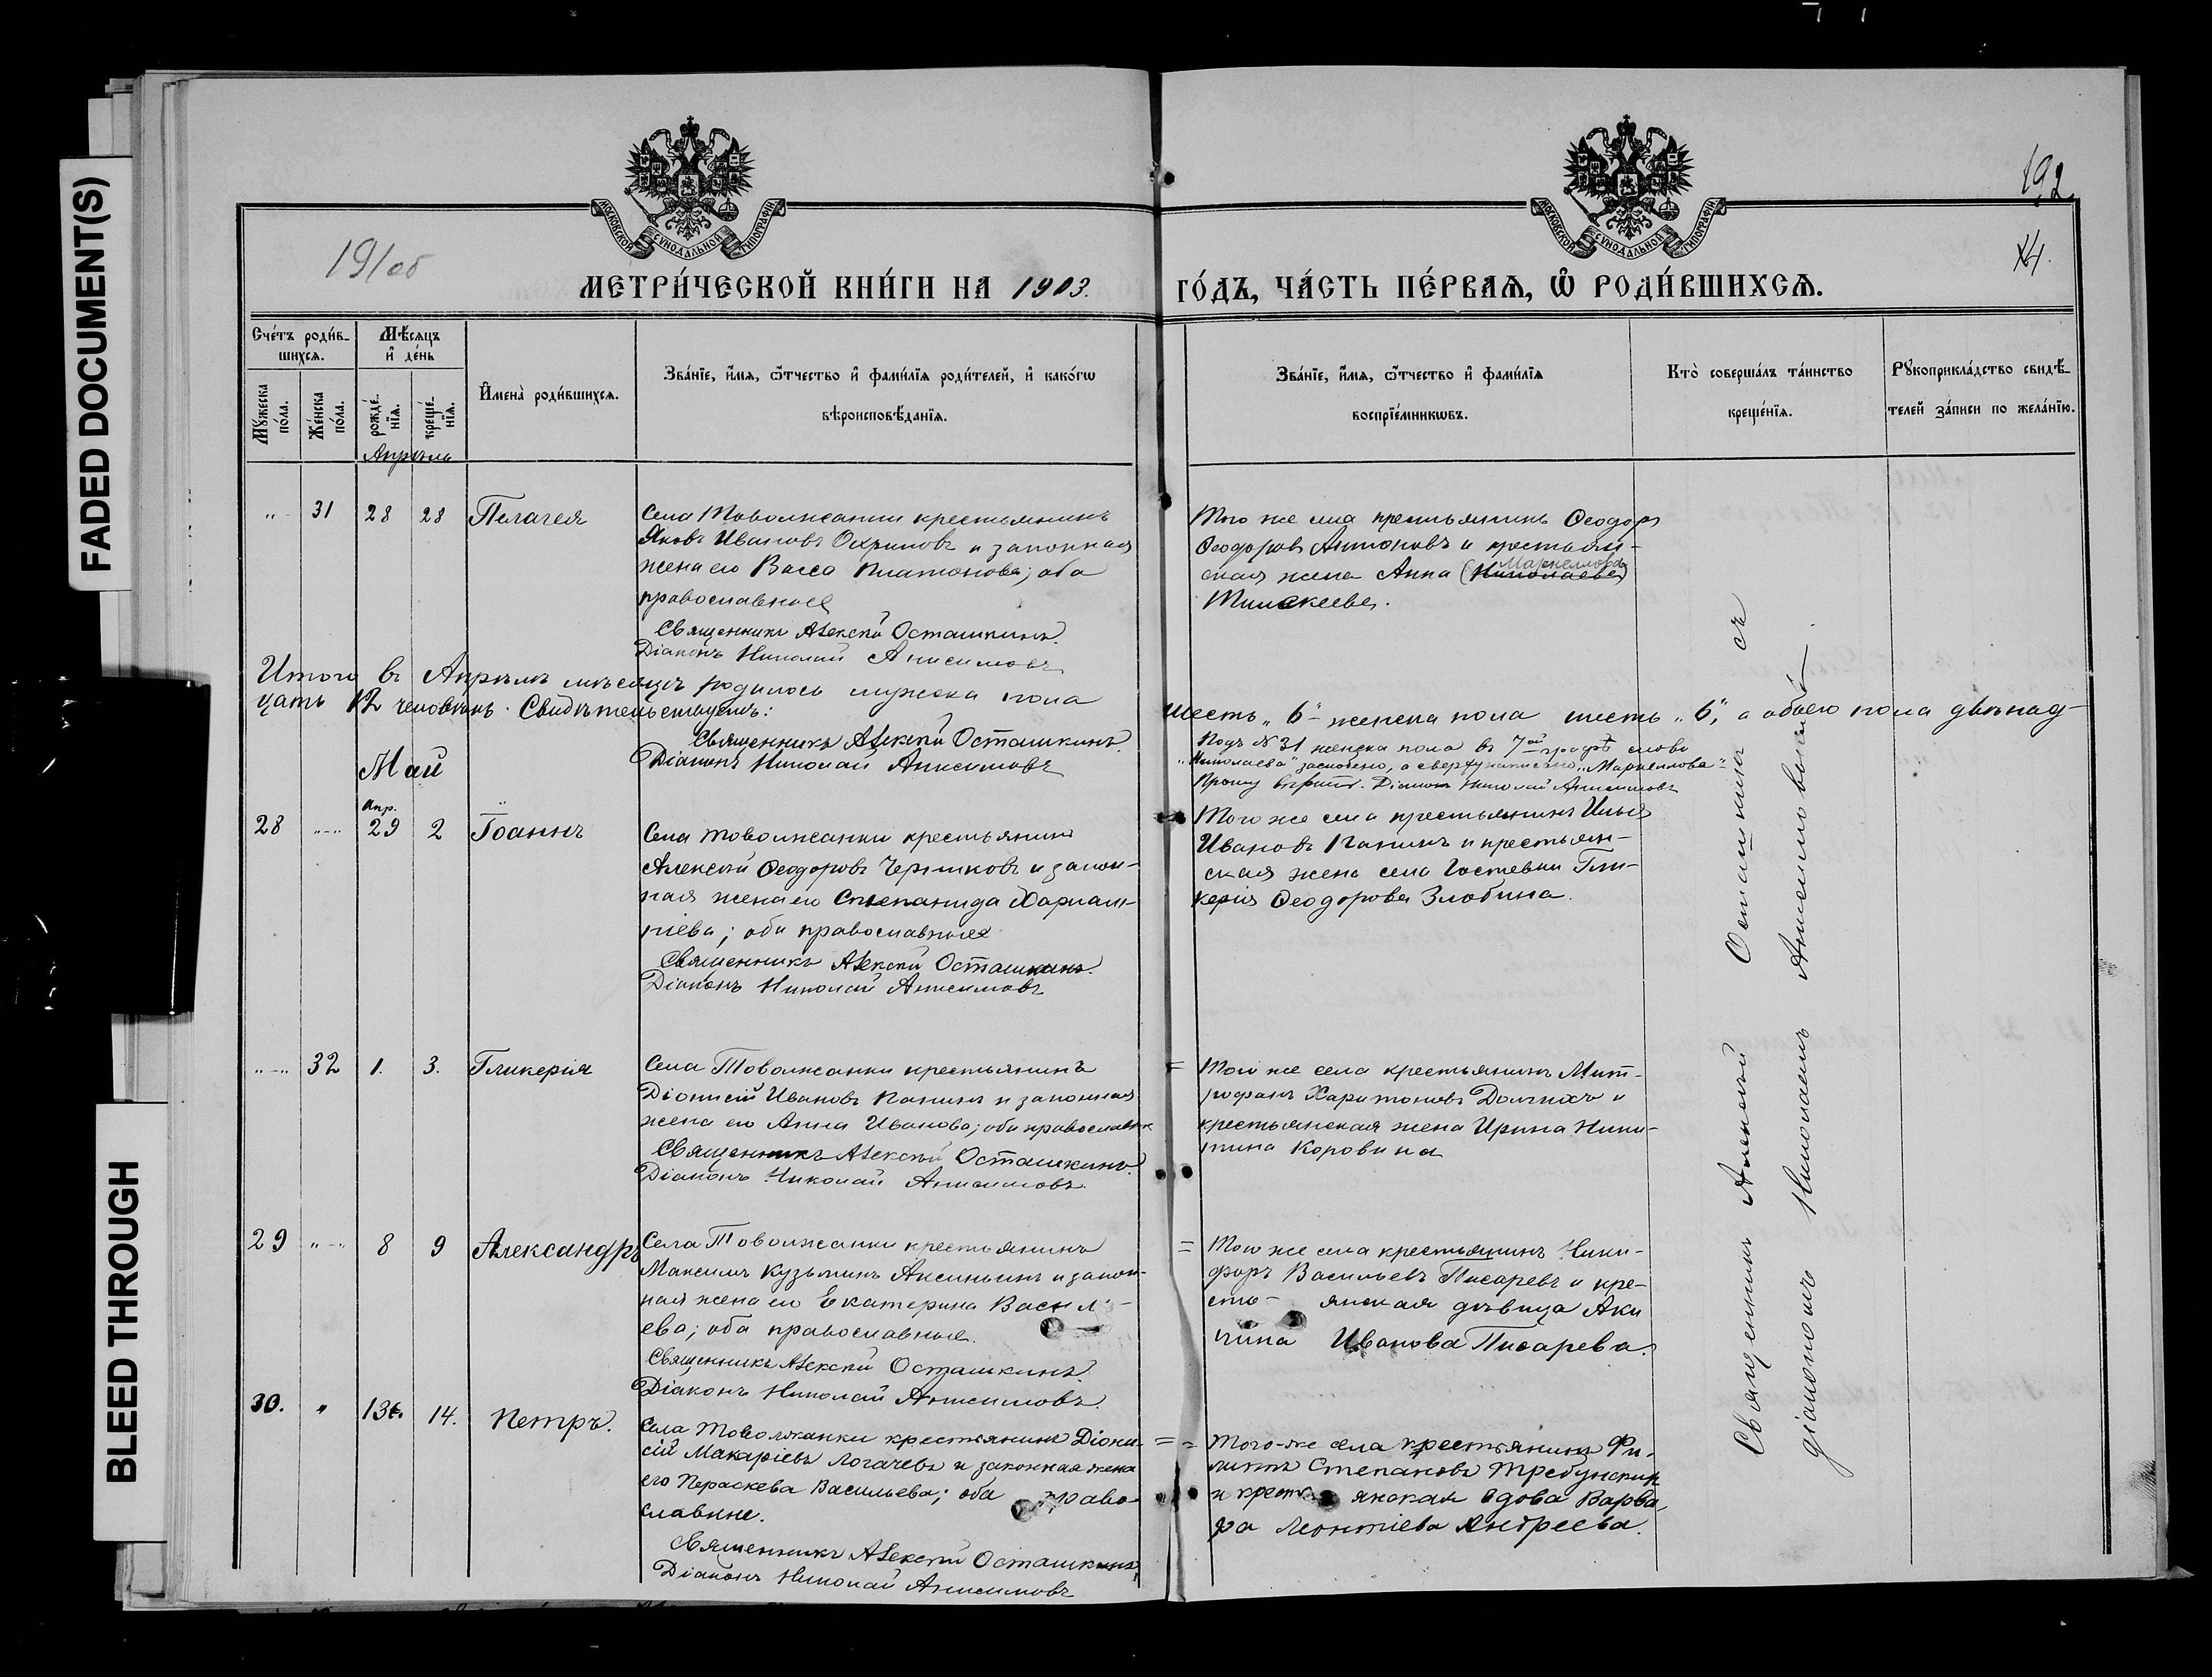 FADED DOCUMENT(S)
BLEED THROUGH
191об
192
МОСКОВСКОЙ СѴНОДАЛЬНОЙ ТИПОГРАФІИ
МОСКОВСКОЙ СѴНОДАЛЬНОЙ ТИПОГРАФІИ
МЕТРИ́ЧЕСКОЙ КНИ́ГИ НА 1903.
ГО́ДЪ, ЧА́СТЬ ПЕ́РВАѦ, Ѽ РОДИ́ВШИХСѦ.
Сче́тъ роди́в-
шихсѧ.
Мѣ́сяцъ
и҆ де́нь
Мꙋ́жеска
по́ла.
Же́нска
по́ла.
рожде́-
нїѧ.
креще́-
нїѧ.
И҆мена̀ роди́вшихсѧ.
Зва́нїе, и҆́мѧ, ѻ҆́тчество и҆ фами́лїѧ роди́телей, и҆ како́гѡ
вѣроисповѣ́данїѧ.
Зва́нїе, и҆́мѧ, ѻ҆́тчество и҆ фами́лїѧ
воспрїе́мникѡвъ.
Кто̀ соверша́лъ та́инство
креще́нїѧ.
Рꙋкоприкла́дство свидѣ́-
телей за́писи по жела́нїю.
Апрѣль
" 31 28 28 Пелагея
Села Товолжанки крестьянинъ
Яковъ Ивановъ и законная
жена его Васса Платонова; оба
православные
Священникъ Алексѣй Осташкинъ.
Діаконъ Николай Анисимовъ
Того же села крестьянинъ Ѳеодоръ
Ѳеодоровъ Антоновъ и крестьян-
ская жена Анна (Николаева) Маркеллова
Итого въ Апрѣлѣ мѣсяцѣ родилось мужска пола
шесть „6" женска пола шесть „6", а обоего пола двѣнад-
цать 12 человѣкъ. Свидѣтельствуемъ:
Священникъ Алексѣй Осташкинъ.
Діаконъ Николай Анисимовъ
Подъ № 31 женска пола въ 7ой графѣ слово
„Николаева" заскоблено, а сверху написано „Маркеллова"
Прошу вѣрить. Діаконъ Николай Анисимовъ
Май
28 " Апр. 29 2 Іоаннъ
Села Товолжанки крестьянинъ
Алексѣй Ѳеодоровъ Черниковъ и закон-
ная жена его Степанида Харлам-
піева; оба православные
Священникъ Алексѣй Осташкинъ.
Діаконъ Николай Анисимовъ
Того же села крестьянинъ Илья
Ивановъ Панинъ и крестьян-
ская жена села Гли-
керія Ѳеодорова Злобина.
" 32 1. 3. Гликерія
Села Товолжанки крестьянинъ
Діонисій Ивановъ Панинъ и законная
жена его Анна Иванова; оба православные
Священникъ Алексѣй Осташкинъ.
Діаконъ Николай Анисимовъ.
= Того же села крестьянинъ Мит-
рофанъ Харитоновъ Долгихъ и
крестьянская жена Ирина Ники-
тина Коровина
29 " 8 9 Александръ
Села Товолжанки крестьянинъ
Максимъ Кузьминъ Аксиньинъ и закон-
ная жена его Екатерина Василь-
ева; оба православные.
Священникъ Алексѣй Осташкинъ.
Діаконъ Николай Анисимовъ.
= Того же села крестьянинъ Ники-
форъ Васильевъ Писаревъ и кре-
сть- янская дѣвица Аки-
лина Иванова Писарева.
30. " 13. 14. Петръ.
Села Товолжанки крестьянинъ Діони-
сій Макаріевъ Логачевъ и законная жена
его Параскева Васильева; оба право-
славные.
Священникъ Алексѣй Осташкинъ,
Діаконъ Николай Анисимовъ
= = Того-же села крестьянинъ Фи-
липпъ Степановъ Требунскихъ
и крестьянская вдова Варва-
ра Леонтіева Андреева.
Священникъ Алексѣй Осташкинъ съ
діакономъ Николаемъ Анисимовымъ